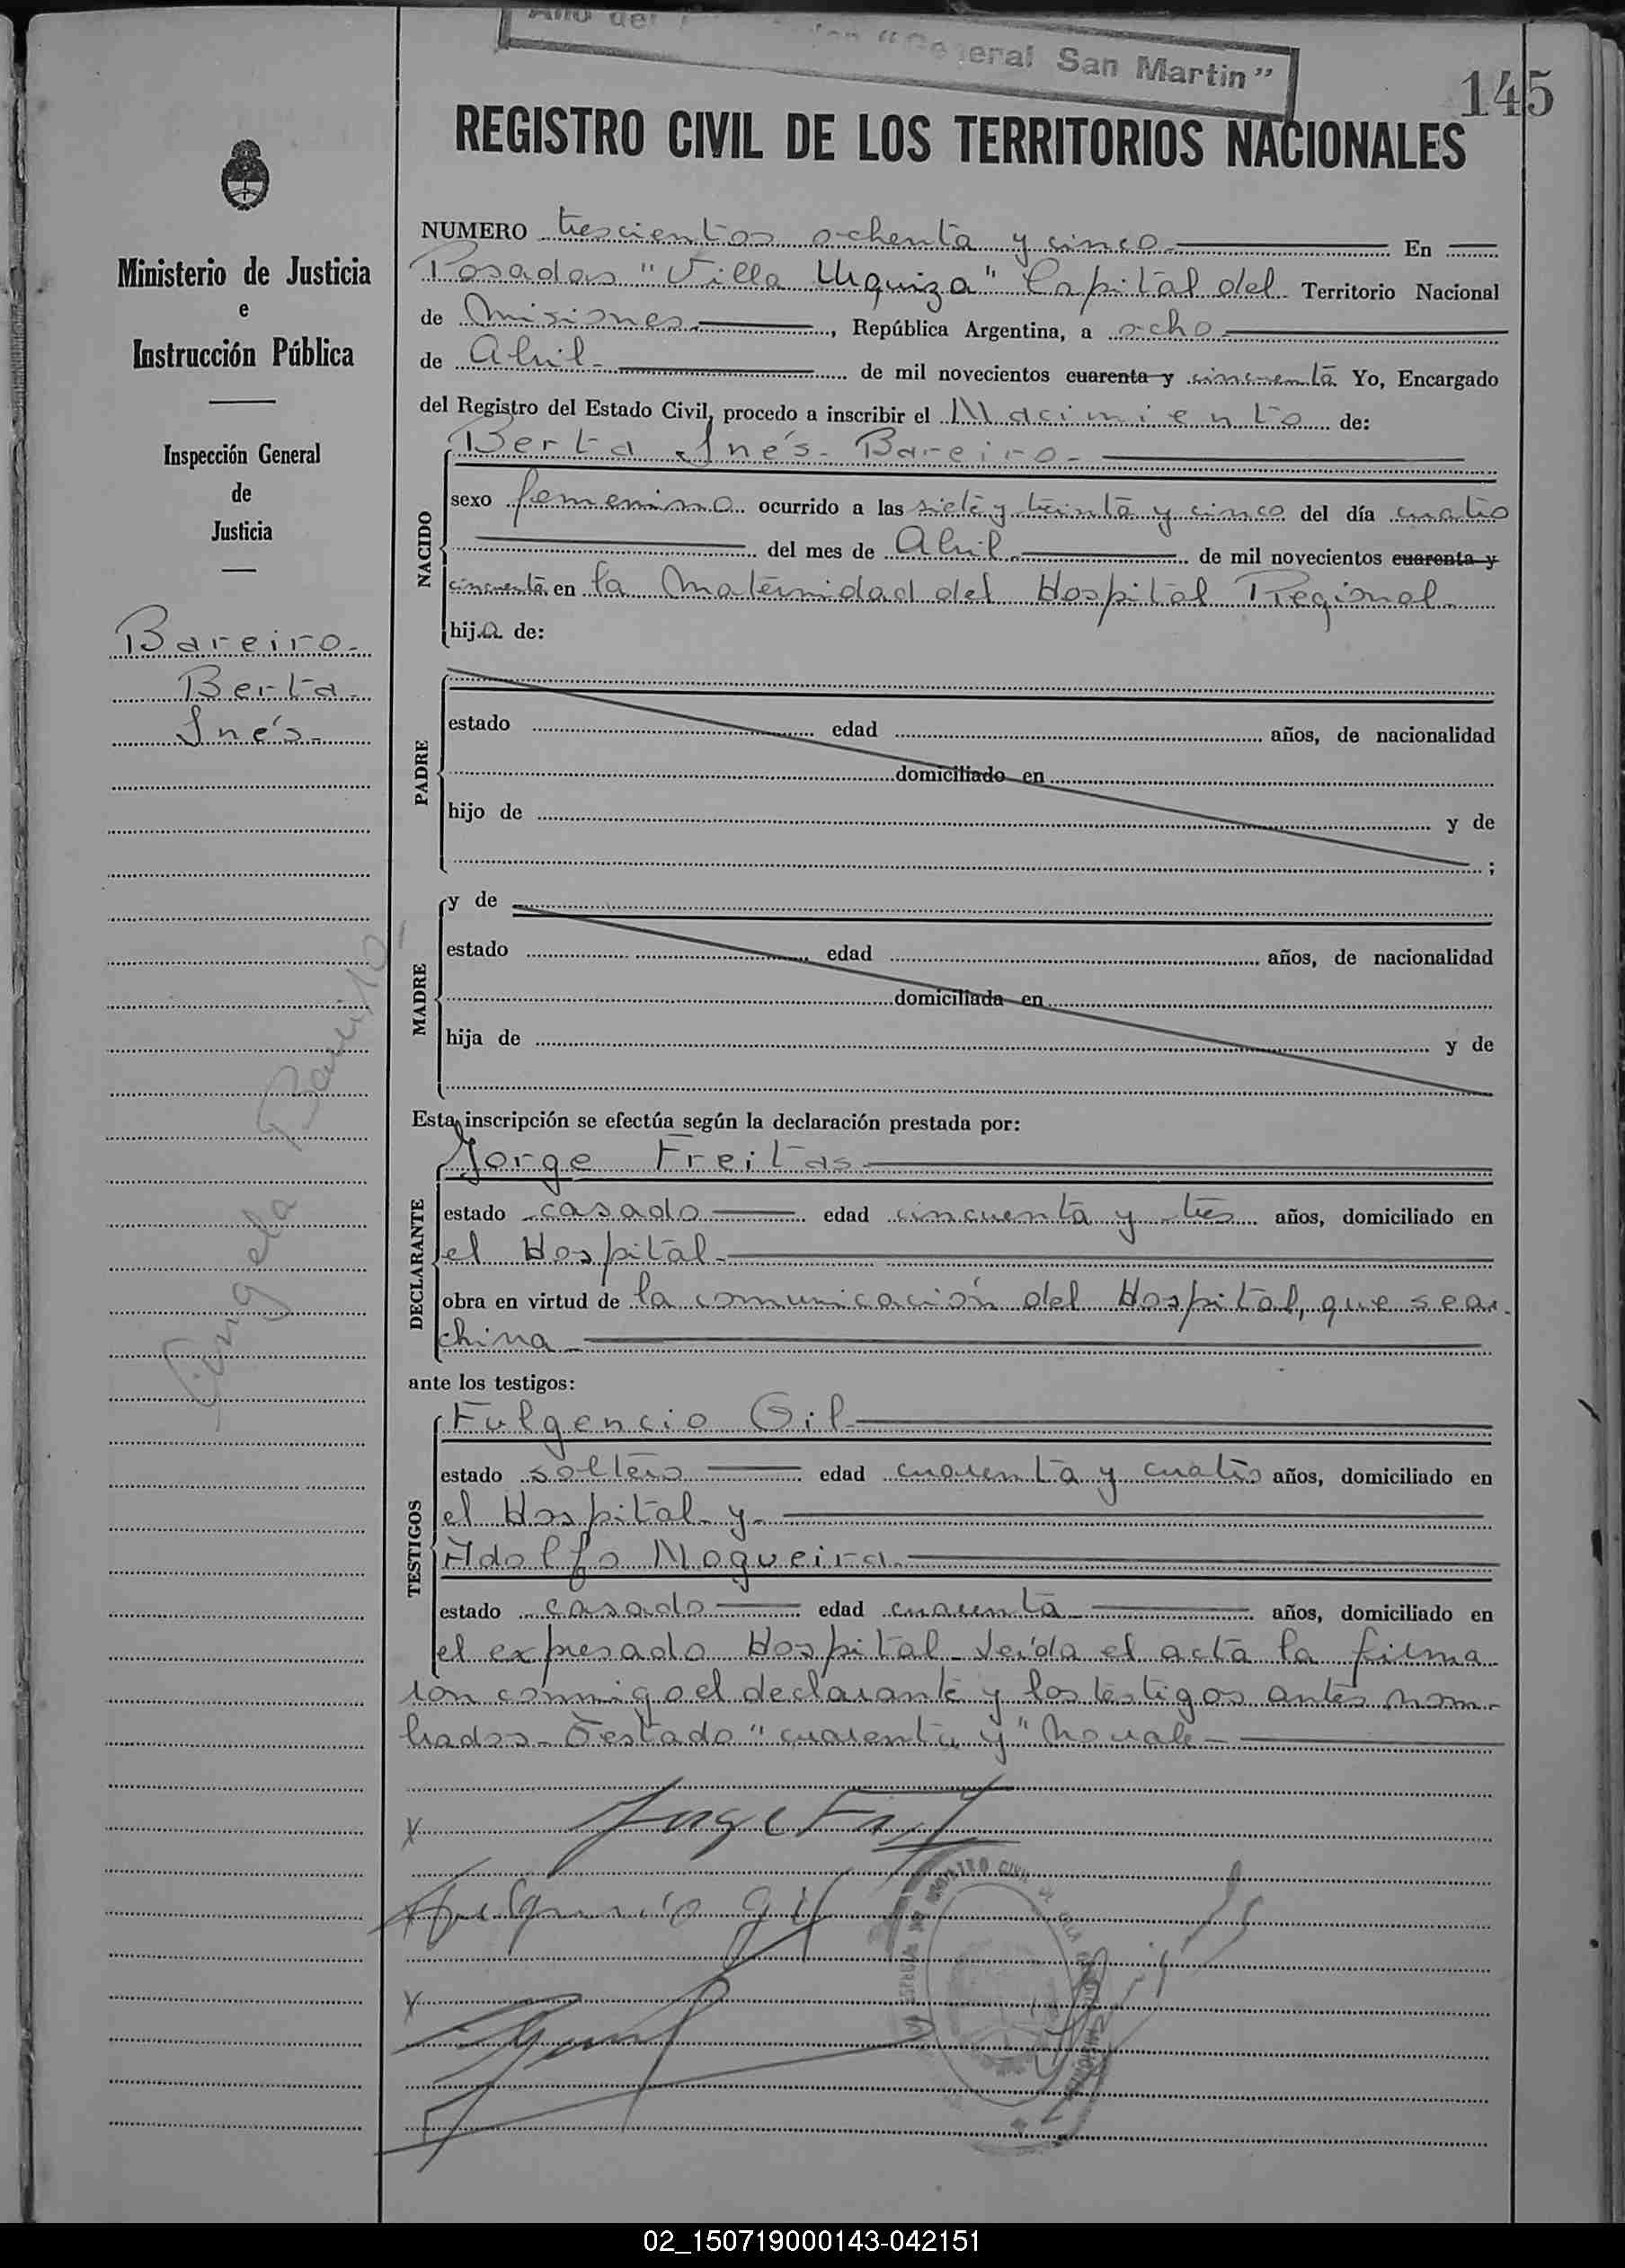 Año del
"General San Martin"
145
REGISTRO CIVIL DE LOS TERRITORIOS NACIONALES
Ministerio de Justicia
e
Instrucción Pública
Inspección General
de
Justicia
Bareiro-
Berta-
Inés-
Angela Bareiro-
NUMERO trescientos ochenta y cinco En
Posadas "Villa Urquiza" Capital del Territorio Nacional
de Misiones, República Argentina, a ocho
de Abril- de mil novecientos cuarenta y cincuenta Yo, Encargado
del Registro del Estado Civil, procedo a inscribir el Nacimiento de:
NACIDO
Berta Inés- Bareiro-
sexo femenino ocurrido a las siete y treinta y cinco del día cuatro
del mes de Abril- de mil novecientos cuarenta y
cincuenta en la Maternidad del Hospital Regional-
hija de:
PADRE
estado edad años, de nacionalidad
domiciliado en
hijo de y de
;
MADRE
y de
estado edad años, de nacionalidad
domiciliada en
hija de y de
Esta inscripción se efectúa según la declaración prestada por:
DECLARANTE
Jorge Freitas
estado casado edad cincuenta y tres años, domiciliado en
el Hospital-
obra en virtud de la comunicación del Hospital, que se ar-
china-
ante los testigos:
TESTIGOS
Fulgencio Gil-
estado soltero edad cuarenta y cuatro años, domiciliado en
el Hospital- y-
Adolfo Nogueira-
estado casado edad cuarenta años, domiciliado en
el expresado Hospital- Leída el acta la firma-
ron conmigo el declarante y los testigos antes nom-
brados- Testado "cuarenta y" no vale-
Fulgencio Gil
REGISTRO CIVIL
02_150719000143-042151